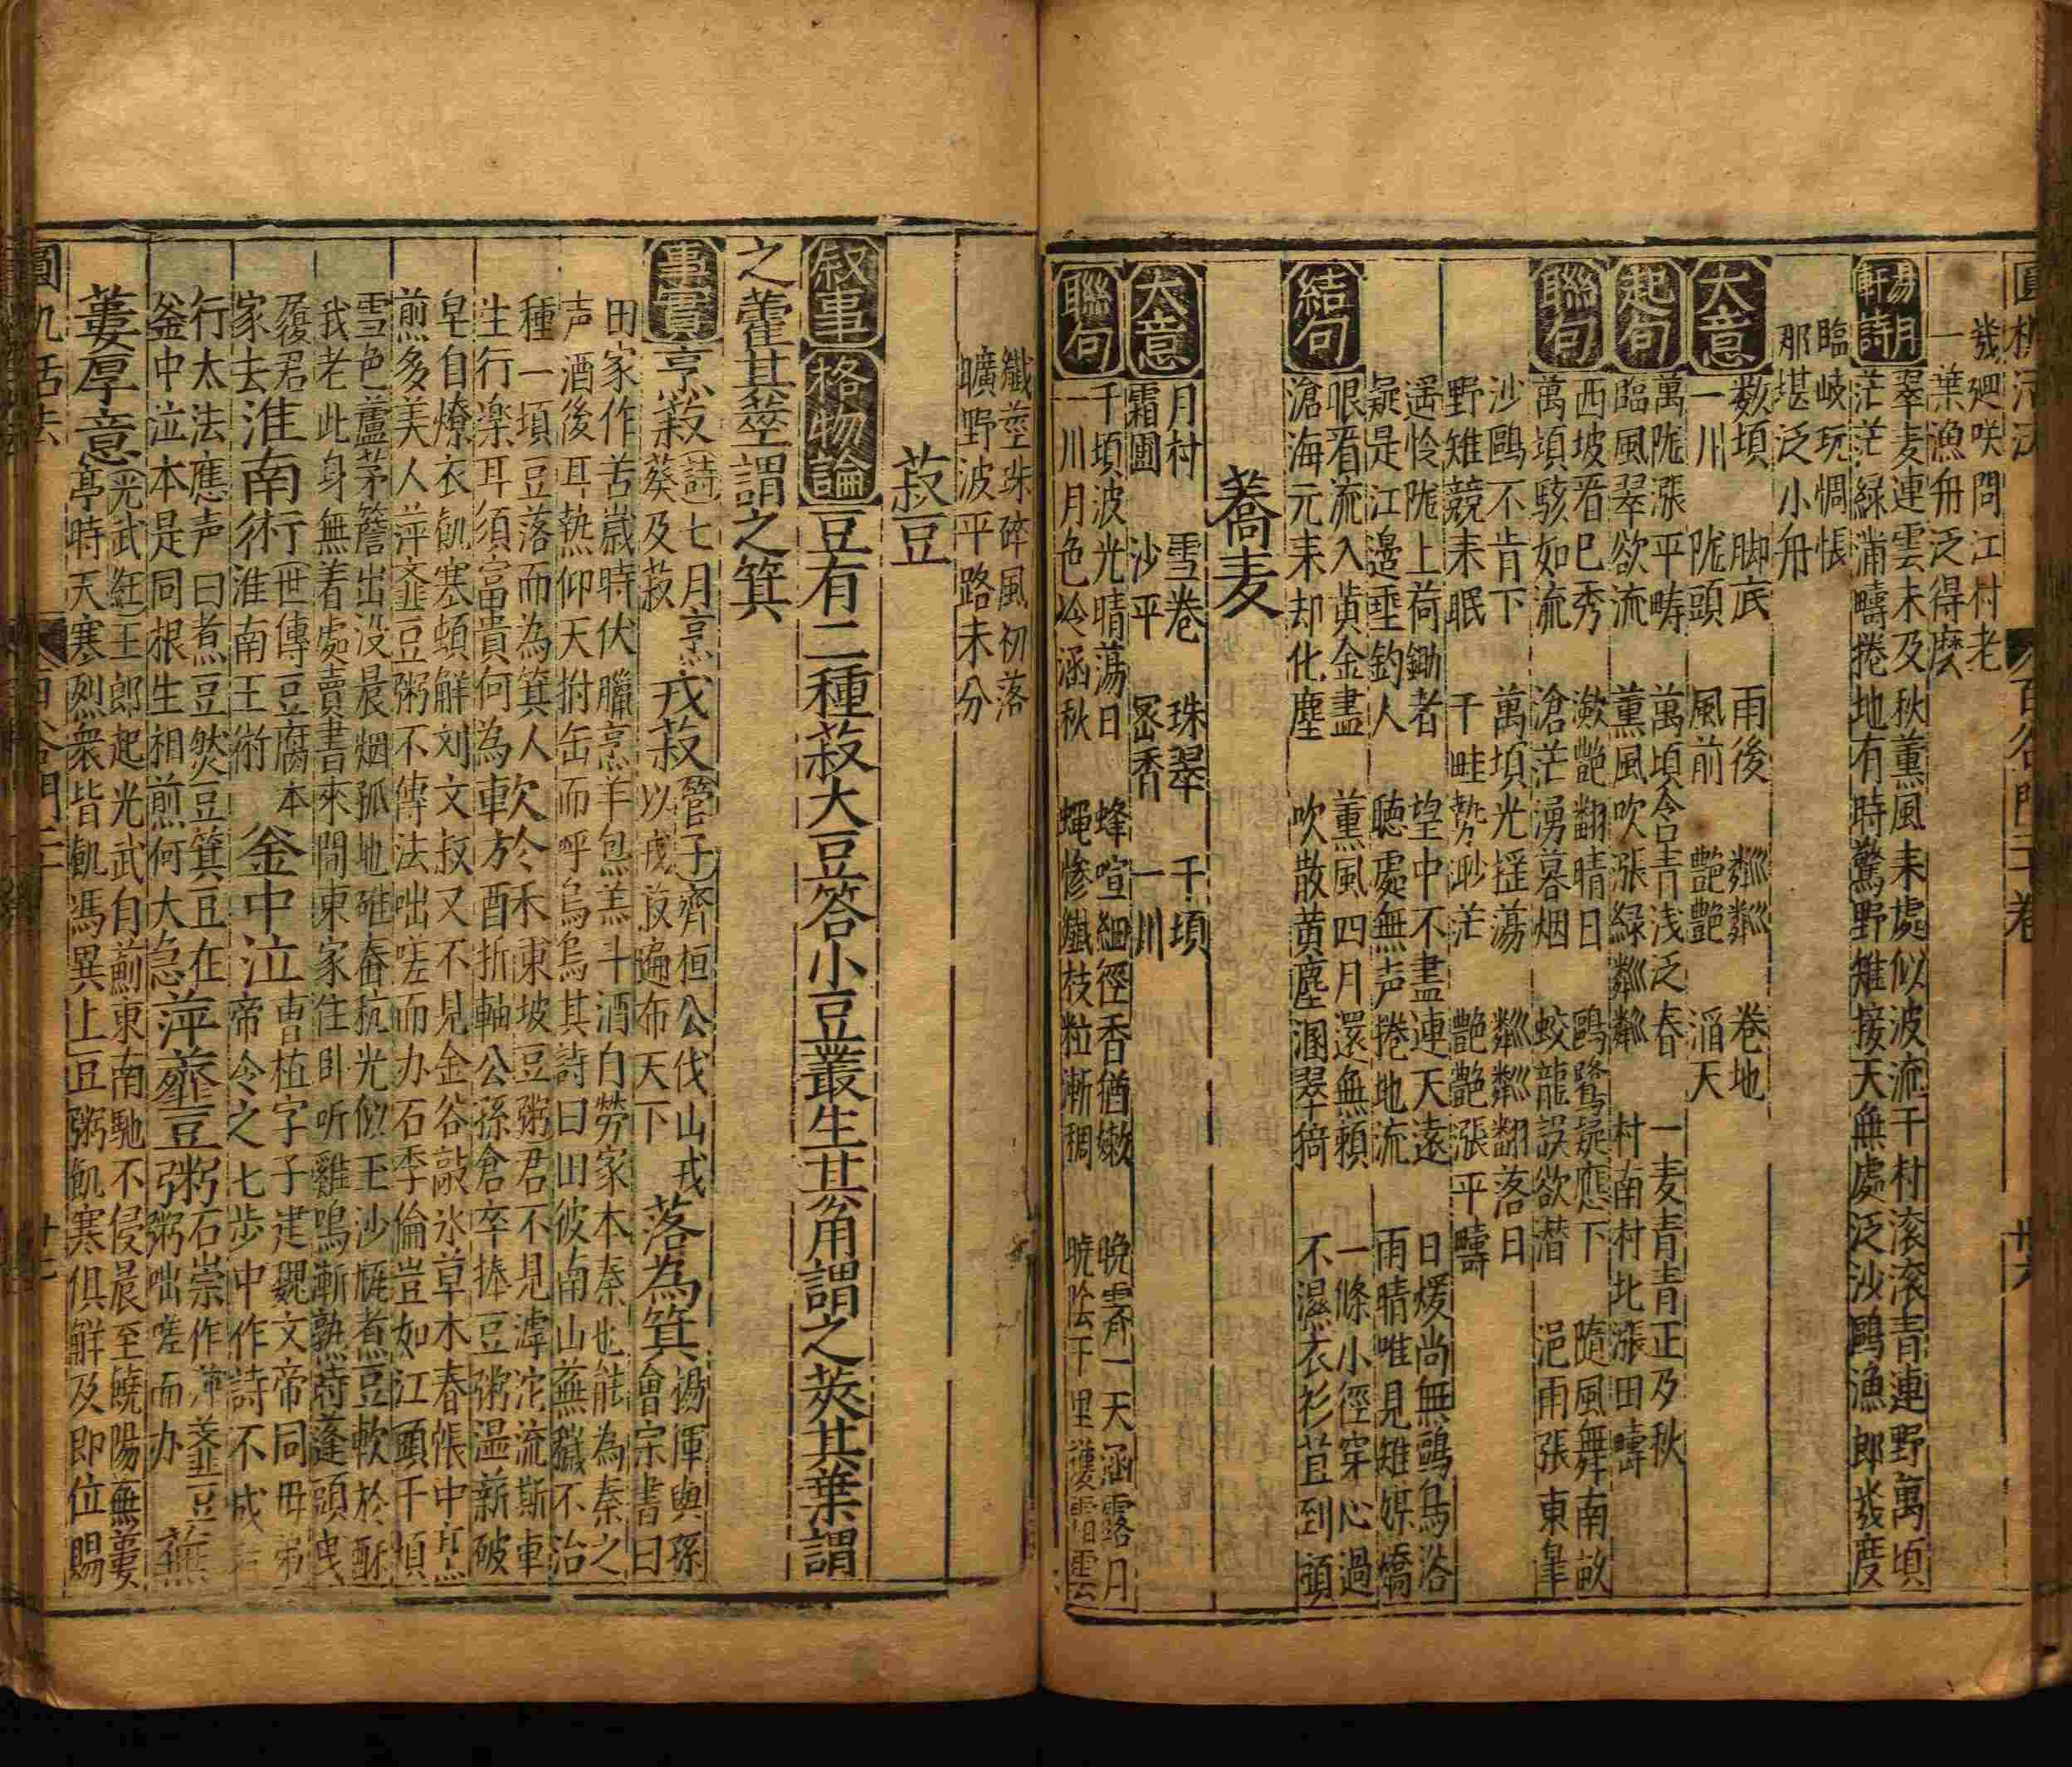 幾廻咲問江村老
一葉漁舟泛得麽
易月軒詩
翠麦連雲未及秋薫風来處似波流千村滚滚青連野萬頃
茫茫緑滿疇捲地有時驚野雉接天無處泛沙鷗漁郎幾度
臨岐玩惆悵
那堪泛小舟
大意
數頃 脚底 雨後 粼粼 卷地
一川 陇頭 風前 艷艷 滔天
起句
萬陇漲平疇 萬頃含青浅泛春 一麦青青正及秋
臨風翠欲流 薫風吹漲緑粼粼 村南村北漲田疇
聯句
西坡看已秀 瀲艷翻晴日 鷗鷺疑應下 隨風舞南畝
萬頃駭如流 滄茫湧暮烟 蛟龍誤欲潜 浥雨張東皐
沙鷗不肯下 萬頃光揺蕩 粼粼翻落日
野雉競来眠 千畦勢渺茫 艷艷漲平疇
遥怜陇上荷鋤者 望中不盡連天遠 日煖尚無鷗鳥浴
疑是江邊垂釣人 聴處無声捲地流 雨晴唯見雉媒嬌
結句
眼看流入黄金盡 薫風四月還無賴 一條小徑穿心過
滄海元来却化塵 吹散黄塵溷翠猗 不濕衣衫苴到頭
蕎麦
大意
月村 雪卷 珠翠 千頃
霜圃 沙平 宻香 一川
聯句
千頃波光晴蕩日 蜂喧細徑香猶嫩 晚霽一天涵露月
一川月色冷涵秋 蝇惨纖枝粒漸稠 暁陰千里護霜雲
纖莖珠碎風初落
曠野波平路未分
菽豆
叙事
格物論
豆有二種菽大豆荅小豆叢生其角謂之莢其葉謂
之藿其莖謂之箕
事實
烹菽
詩七月烹
葵及菽
戎菽
管子齊桓公伐山戎
以戎菽遍布天下
落為箕
楊惲與孫
會宗書曰
田家作苦嵗時伏臘烹羊炰羔斗酒自劳家本秦也能為秦之
声酒後耳熱仰天拊缶而呼烏烏其詩曰田彼南山蕪穢不治
種一頃豆落而為箕人
生行楽耳須富貴何為
軟於禾
東坡豆粥君不見滹沱流澌車
折軸公孫倉卒捧豆粥温薪破
皁自燎衣飢寒頓解刘文叔又不見金谷敲氷草木春帳中烹
煎多美人萍韲豆粥不傳法咄嗟而办石季倫豈如江頭千頃
雪色蘆茅簷出没晨烟孤地碓舂秔光似玉沙甁煮豆軟於酥
我老此身無着處賣書來問東家住卧听雞鳴漸熟時蓬頭曳
履君
家去
淮南術
世傳豆腐本
淮南王術
釜中泣
曹植字子建魏文帝同母弟
帝令之七歩中作詩不成
行太法應声曰煮豆燃豆箕豆在
釜中泣本是同根生相煎何大急
萍韲豆粥
石崇作萍韲豆
粥咄嗟而办
蕪
蔞厚意
光武紀王郎起光武自薊東南馳不侵晨至饒陽無蔞
亭時天寒烈衆皆飢馮異上豆粥飢寒俱觧及即位賜